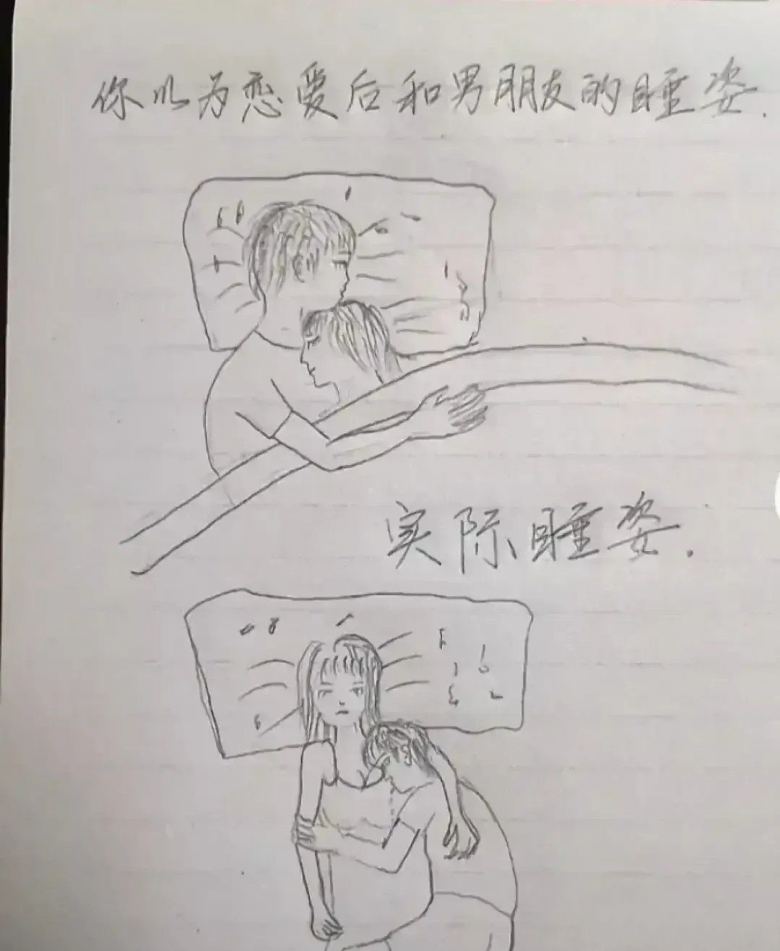 你以为恋爱后和男朋友的睡姿.
实际睡姿.